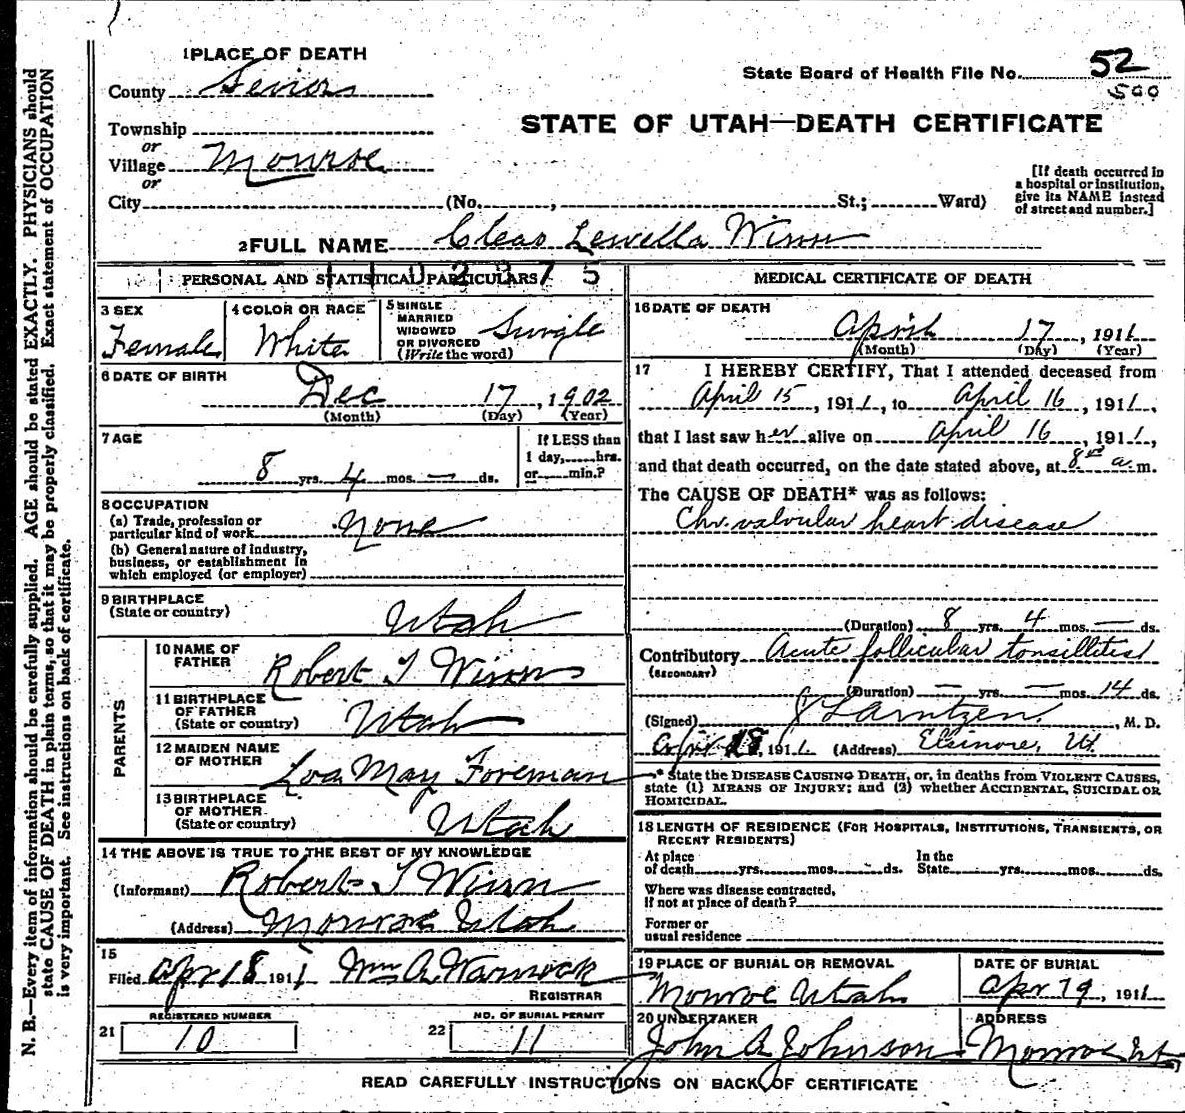 1 PLACE OF DEATH
County Sevier
State Board of Health File No. 52
500
STATE OF UTAH—DEATH CERTIFICATE
Township
or
Village Monroe
or
City (No. , St.; Ward)
[If death occurred in
a hospital or institution,
give its NAME instead
of street and number.]
2 FULL NAME Cleao Lewella Winn
PERSONAL AND STATISTICAL PARTICULARS
MEDICAL CERTIFICATE OF DEATH
3 SEX
Female
4 COLOR OR RACE
White
5 SINGLE
MARRIED
WIDOWED
OR DIVORCED
(Write the word)
Single
6 DATE OF BIRTH
Dec 17, 1902
(Month) (Day) (Year)
7 AGE
8 yrs. 4 mos. — ds.
If LESS than
1 day, hrs.
or min.?
8 OCCUPATION
(a) Trade, profession or
particular kind of work None
(b) General nature of industry,
business, or establishment in
which employed (or employer)
9 BIRTHPLACE
(State or country)
Utah
PARENTS
10 NAME OF
FATHER
Robert T Winn
11 BIRTHPLACE
OF FATHER
(State or country)
Utah
12 MAIDEN NAME
OF MOTHER
Loa May Foreman
13 BIRTHPLACE
OF MOTHER
(State or country)
Utah
14 THE ABOVE IS TRUE TO THE BEST OF MY KNOWLEDGE
(Informant) Robert T Winn
(Address) Monroe Utah
15
Filed Apr 18 1911 Wm A Warnock
REGISTRAR
REGISTERED NUMBER
21 10
NO. OF BURIAL PERMIT
22 11
16 DATE OF DEATH
April 17, 1911
(Month) (Day) (Year)
17 I HEREBY CERTIFY, That I attended deceased from
April 15, 1911, to April 16, 1911,
that I last saw her alive on April 16, 1911,
and that death occurred, on the date stated above, at 8 a.m.
The CAUSE OF DEATH* was as follows:
Chr. valvular heart disease
(Duration) 8 yrs. 4 mos. — ds.
Contributory Acute follicular tonsillitis
(SECONDARY)
(Duration) — yrs. — mos. 14 ds.
(Signed) J Lauritzen, M. D.
Apr 18, 1911 (Address) Elsinore, Ut
* State the DISEASE CAUSING DEATH, or, in deaths from VIOLENT CAUSES,
state (1) MEANS OF INJURY; and (2) whether ACCIDENTAL, SUICIDAL OR
HOMICIDAL.
18 LENGTH OF RESIDENCE (FOR HOSPITALS, INSTITUTIONS, TRANSIENTS, OR
RECENT RESIDENTS)
At place
of death yrs. mos. ds.
In the
State yrs. mos. ds.
Where was disease contracted,
If not at place of death?
Former or
usual residence
19 PLACE OF BURIAL OR REMOVAL
Monroe Utah
DATE OF BURIAL
Apr 19, 1911
20 UNDERTAKER
John A Johnson
ADDRESS
Monroe Ut
READ CAREFULLY INSTRUCTIONS ON BACK OF CERTIFICATE
N. B.—Every item of information should be carefully supplied. AGE should be stated EXACTLY. PHYSICIANS should
state CAUSE OF DEATH in plain terms, so that it may be properly classified. Exact statement of OCCUPATION
is very important. See instructions on back of certificate.